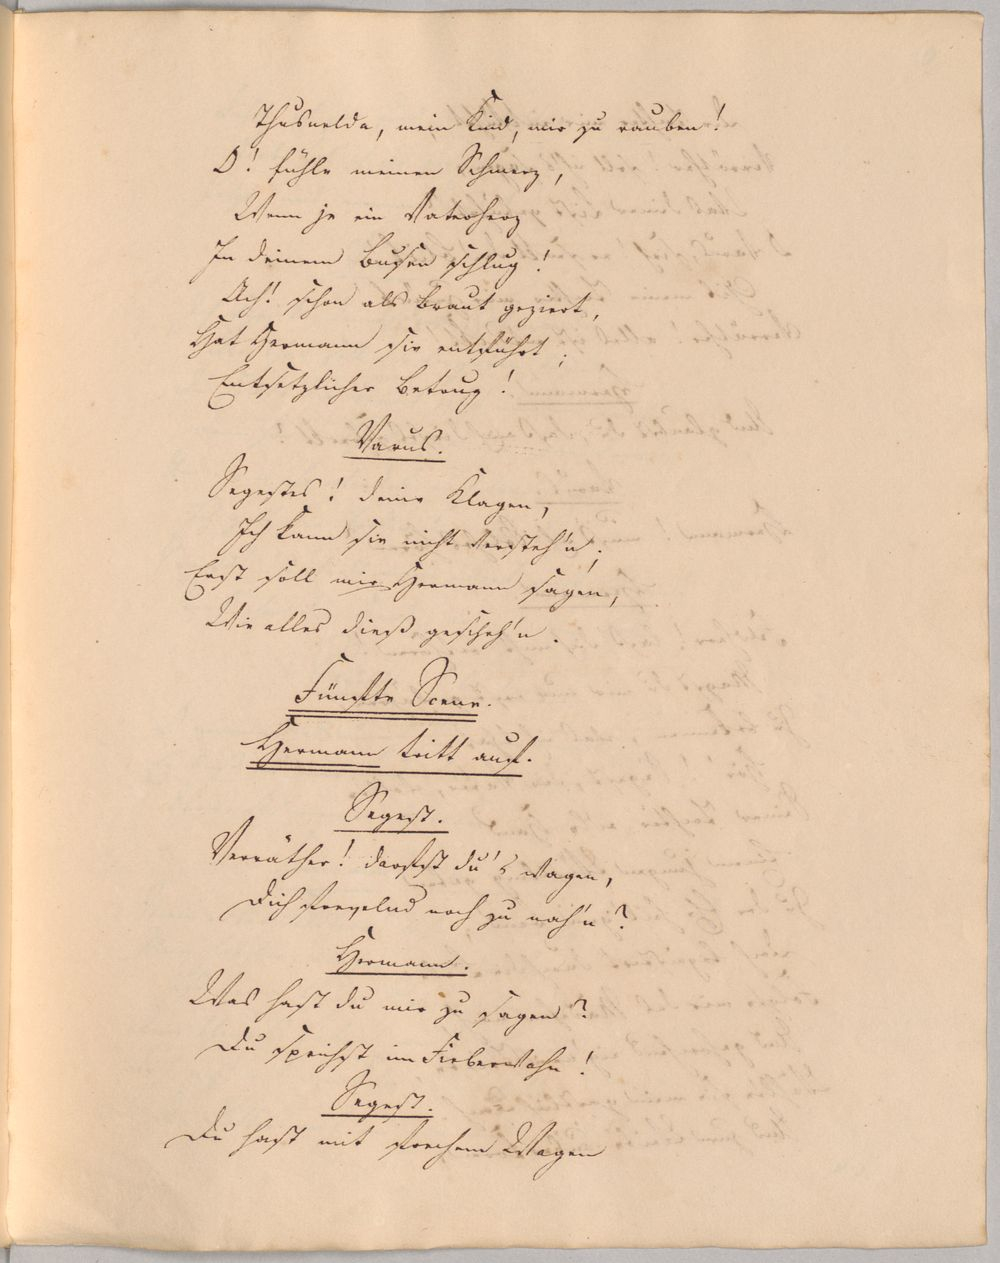 Thusnelda, mein Kind, mir zu rauben!
O! fühle meinen Schmerz,
Wenn je ein Vaterherz
In deinem Busen schlug!
Ach! schon als Braut geziert,
Hat Hermann sie entführt;
Entsetzlicher Betrug!
Varus.
Segestes! deine Klagen,
Ich kann sie nicht versteh'n;
Erst soll mir Hermann sagen,
Wie alles dieß gescheh'n.
Fünfte Scene.
Hermann tritt auf.
Segest.
Verräther! darfst du's wagen,
Dich frevelnd noch zu nah'n?
Hermann.
Was hast du mir zu sagen?
Du sprichst im Fieberwahn!
Segest.
Du hast mit frechem Wagen